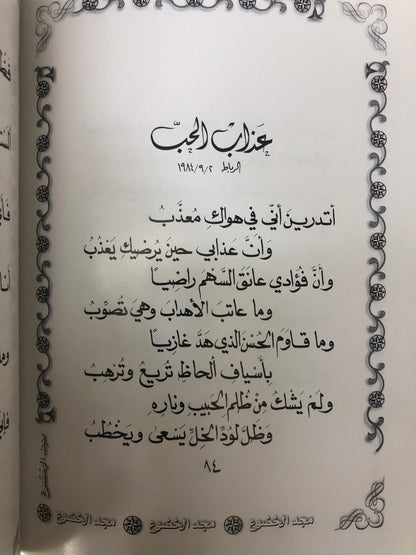 عذاب الحبّ
الرباط ١٩٨٤/٩/٢
أتدرين أنّي في هواكِ معذّبُ
وأنَّ عذابي حين يُرضيكِ يَعْذُبُ
وأنَّ فؤادي عانق السَّهم راضياً
وما عاتب الأهداب وهي تُصوِّبُ
وما قاوم الحُسن الذي هَدَّ غازياً
بأسياف ألحاظٍ تُريعُ وتُرْهِبُ
ولم يَشْكُ مِنْ ظُلم الحبيب ونارهِ
وظلَّ لودِّ الخلِّ يسعى ويخطُبُ
٨٤
مجد الخضوع
مجد الخضوع
مجد الخضوع